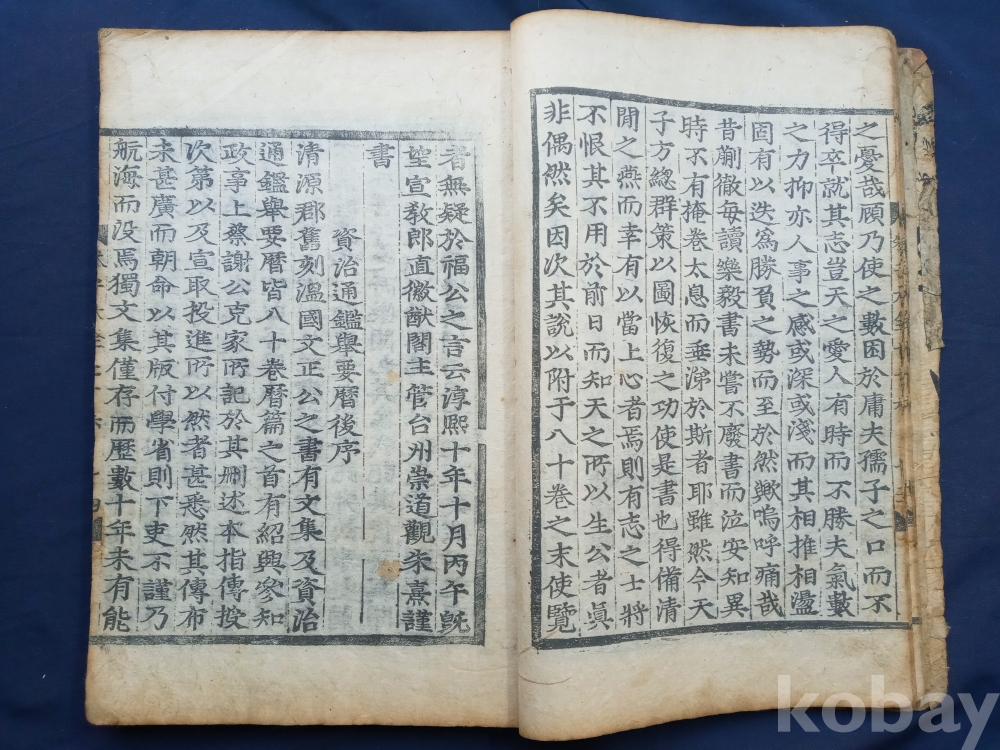 之憂哉顧乃使之數困於庸夫孺子之口而不
得卒就其志豈天之愛人有時而不勝夫氣數
之力抑亦人事之感或深或淺而其相推相盪
固有以迭爲勝負之勢而至於然歟嗚呼痛哉
昔蒯徹每讀樂毅書未嘗不廢書而泣安知異
時不有掩卷太息而垂涕於斯者耶雖然今天
子方總群策以圖恢復之功使是書也得備清
閒之燕而幸有以當上心者焉則有志之士將
不恨其不用於前日而知天之所以生公者眞
非偶然矣因次其說以附于八十卷之末使覽
者無疑於福公之言云淳熙十年十月丙午旣
望宣敎郎直徽猷閣主管台州崇道觀朱熹謹
書
資治通鑑舉要曆後序
清源郡舊刻溫國文正公之書有文集及資治
通鑑舉要曆皆八十卷曆篇之首有紹興參知
政事上蔡謝公克家所記於其刪述本指傳授
次第以及宣取投進所以然者甚悉然其傳布
未甚廣而朝命以其版付學省則下吏不謹乃
航海而沒焉獨文集僅存而歷數十年未有能
kobay